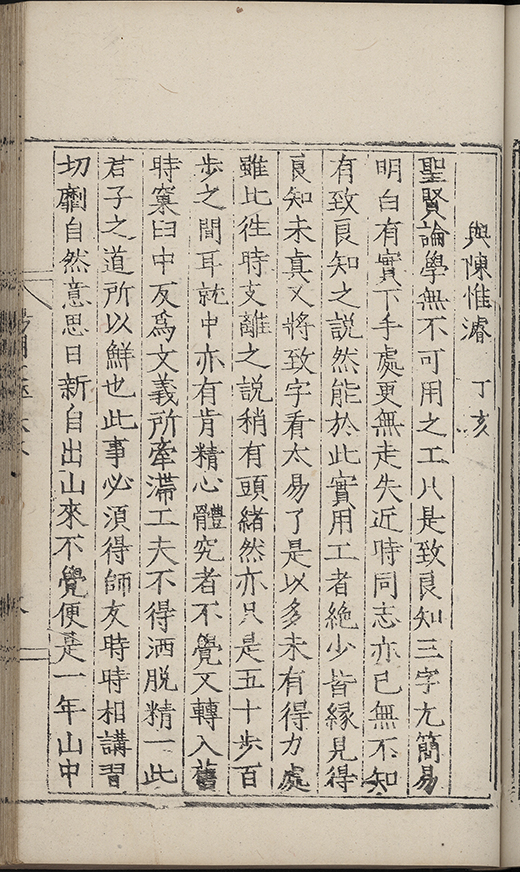 與陳惟濬 丁亥
聖賢論學無不可用之工只是致良知三字尤簡易
明白有實下手處更無走失近時同志亦已無不知
有致良知之說然能於此實用工者絶少皆緣見得
良知未真又將致字看太易了是以多未有得力處
雖比徃時支離之說稍有頭緒然亦只是五十歩百
歩之間耳就中亦有肯精心體究者不覺又轉入舊
時窠臼中反爲文義所牽滯工夫不得洒脱精一此
君子之道所以鮮也此事必須得師友時時相講習
切劘自然意思日新自出山來不覺便是一年山中